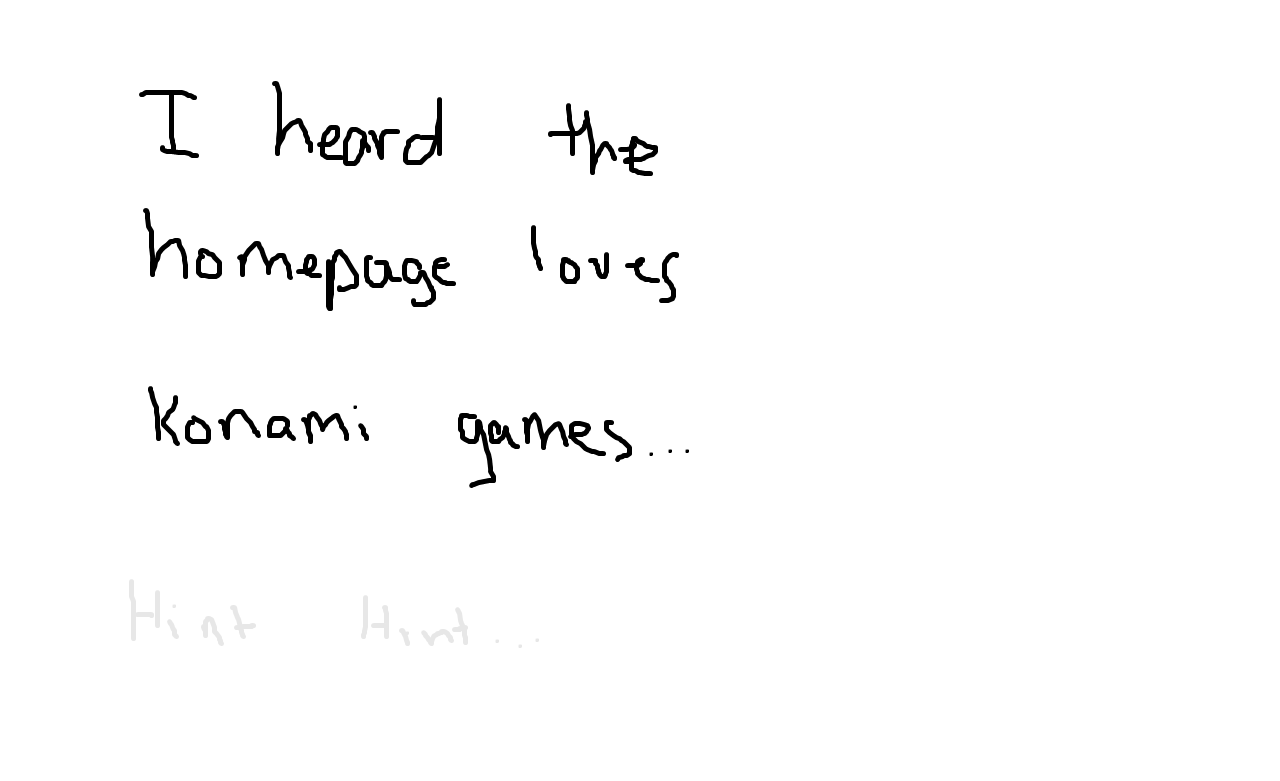 I heard the
homepage loves
Konami games...
Hint Hint...